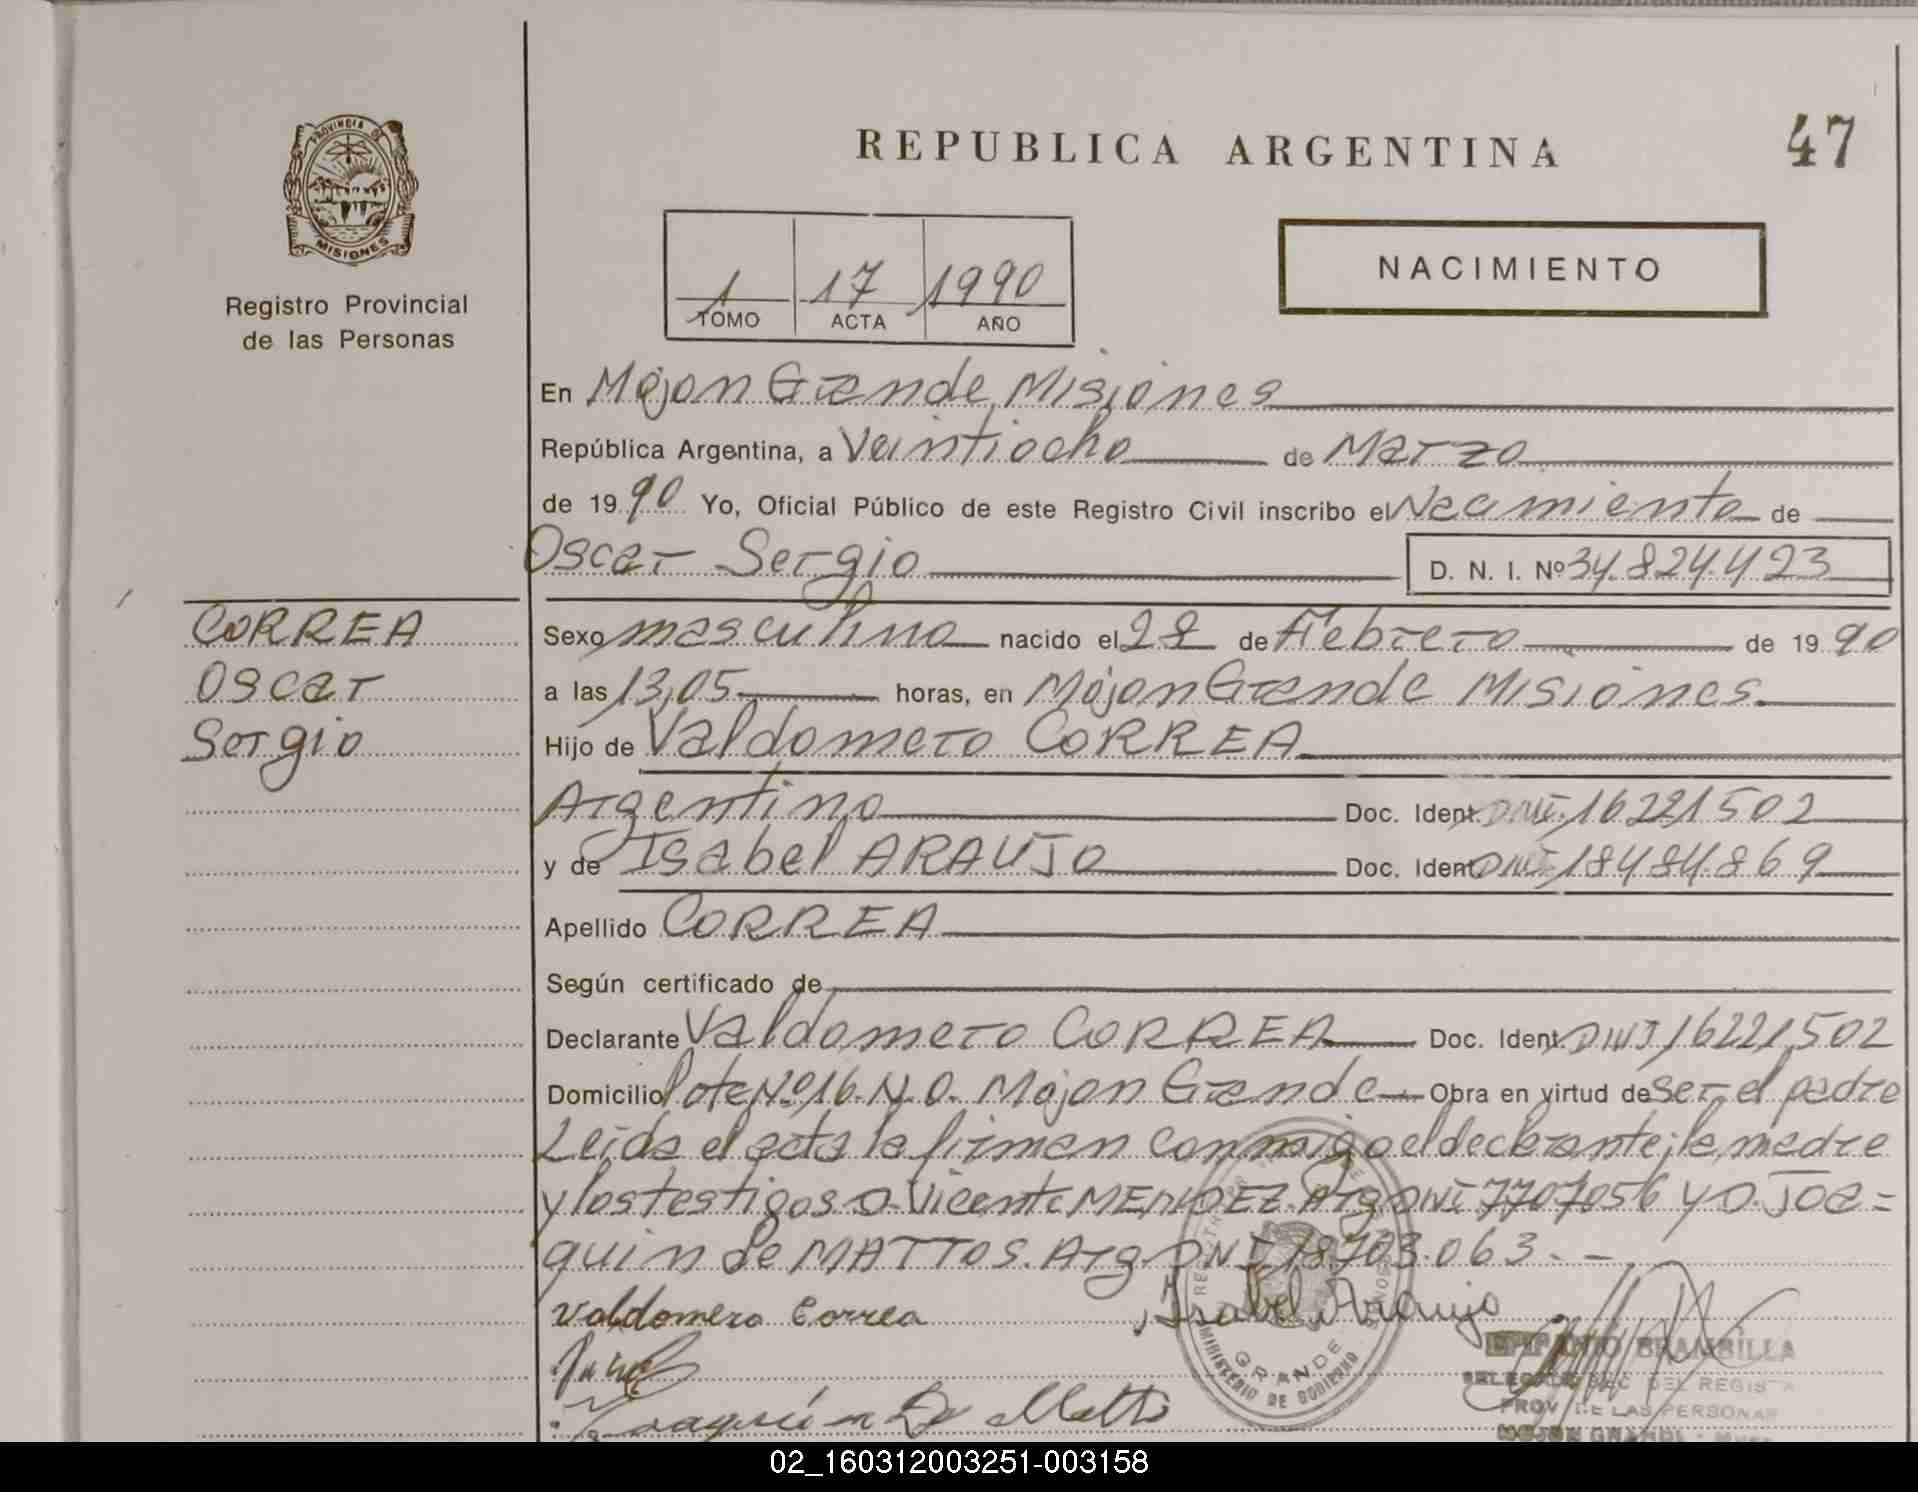 REPUBLICA ARGENTINA
47
PROVINCIA DE
MISIONES
Registro Provincial
de las Personas
NACIMIENTO
1 17 1990
TOMO ACTA AÑO
En Mojon Grande Misiones
República Argentina, a Veintiocho de Marzo
de 19 90 Yo, Oficial Público de este Registro Civil inscribo el Nacimiento de
Oscar Sergio D. N. I. Nº 34.824.423
CORREA
Oscar
Sergio
Sexo masculino nacido el 28 de Febrero de 19 90
a las 13,05 horas, en Mojon Grande Misiones.
Hijo de Valdomero CORREA
Argentino Doc. Ident. DNI. 16221502
y de Isabel ARAUJO Doc. Ident. DNI 18484.869
Apellido CORREA
Según certificado de
Declarante Valdomero CORREA Doc. Ident. DNI 16221502
Domicilio lote Nº 16. N.O. Mojon Grande Obra en virtud de ser el padre
Leida el acta la firman conmigo el declarante; la madre
y los testigos D. Vicente MENDEZ. Arg. DNI 7707056 y D. Joa=
quin de MATTOS. Arg. DNI 18.703.063.-
Valdomero Correa Isabel Araujo
GRANDE
MINISTERIO DE GOBIERNO
BRAMBILLA
DEL REGIST
PROV. DE LAS PERSONAS
MOJON GRANDE
Joaquín De Matto
02_160312003251-003158